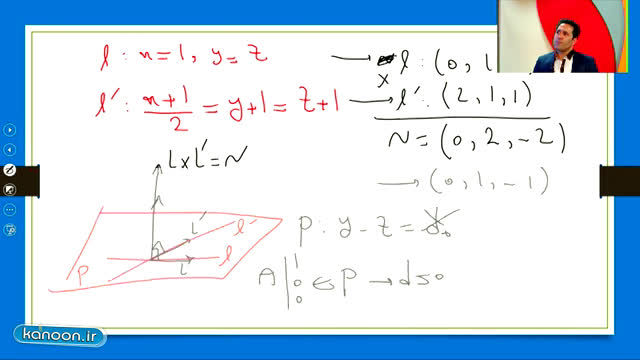 l : x = 1 , y = z → l : (0, 1
×
l' : x+1/2 = y+1 = z+1 → l' : (2, 1, 1)
N = (0, 2, -2)
→ (0, 1, -1)
L×L' = N
P : y - z = d 0
L' l'
P L l
A | 1 0 0 ∈ P → d = 0
kanoon.ir